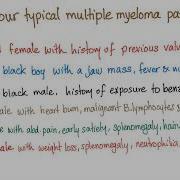 our typical multiple myeloma pa
female with history of previous valv
black boy with a jaw mass, fever & n
black male. history of exposure to benz
le with heart burn, malignant B-lymphocytes &
e with abd. pain, early satiety, splenomegaly, hair
ale with weight loss, splenomegaly, neutrophilia,